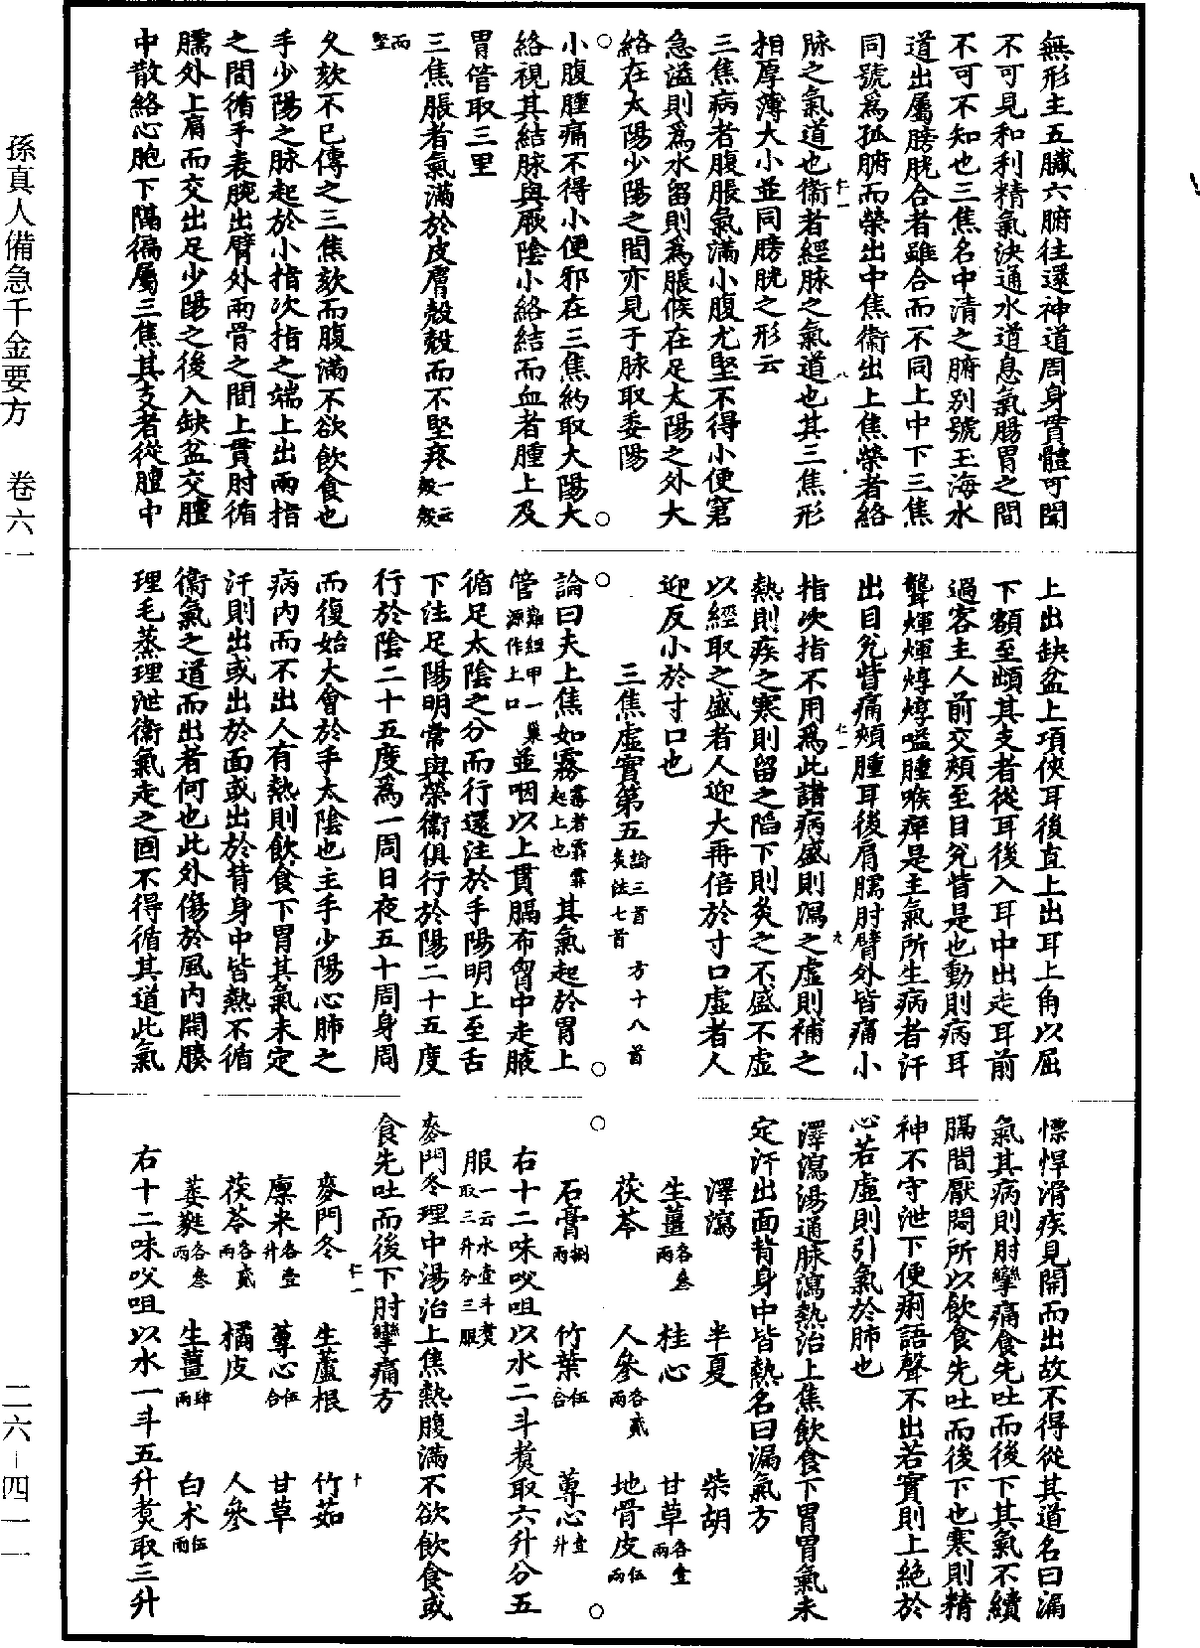 無形主五臟六腑往還神道周身貫體可聞
不可見和利精氣決通水道息氣腸胃之間
不可不知也三焦名中清之腑别號玉海水
道出屬膀胱合者雖合而不同上中下三焦
同號爲孤腑而榮出中焦衛出上焦榮者絡
脉之氣道也衞者經脉之氣道也其三焦形
相厚薄大小並同膀胱之形云
三焦病者腹脹氣滿小腹尤堅不得小便窘
急溢則爲水留則爲脹候在足太陽之外大
絡在太陽少陽之間亦見于脉取委陽
小腹腫痛不得小便邪在三焦約取大陽大
絡視其結脉與厥陰小絡結而血者腫上及
胃管取三里
三焦脹者氣滿於皮膚殼殼而不堅疼一云殼殼
而堅
久欬不已傳之三焦欬而腹滿不欲飲食也
手少陽之脉起於小指次指之端上出兩指
之間循手表腕出臂外兩骨之間上貫肘循
臑外上肩而交出足少陽之後入缺盆交膻
中散絡心胞下膈徧屬三焦其支者從膻中
上出缺盆上項俠耳後直上出耳上角以屈
下額至䪼其支者從耳後入耳中出走耳前
過客主人前交頰至目兊眥是也動則病耳
聾煇煇焞焞嗌腫喉痺是主氣所生病者汗
出目兊眥痛頰腫耳後肩臑肘臂外皆痛小
指次指不用爲此諸病盛則瀉之虛則補之
熱則疾之寒則留之陷下則灸之不盛不虛
以經取之盛者人迎大再倍於寸口虛者人
迎反小於寸口也
三焦虛實第五論三首 方十八首 灸法七首
論曰夫上焦如霧霧者霏霏起上也其氣起於胃上
管難經甲一巢源作上口並咽以上貫膈布胷中走腋
循足太陰之分而行還注於手陽明上至舌
下注足陽明常與榮衞俱行於陽二十五度
行於陰二十五度爲一周日夜五十周身周
而復始大會於手太陰也主手少陽心肺之
病内而不出人有熱則飲食下胃其氣未定
汗則出或出於面或出於背身中皆熱不循
衞氣之道而出者何也此外傷於風内開腠
理毛蒸理泄衞氣走之固不得循其道此氣
慓悍滑疾見開而出故不得從其道名曰漏
氣其病則肘攣痛食先吐而後下其氣不續
膈間厭悶所以飲食先吐而後下也寒則精
神不守泄下便痢語聲不出若實則上絶於
心若虛則引氣於肺也
澤瀉湯通脉瀉熱治上焦飲食下胃胃氣未
定汗出面背身中皆熱名曰漏氣方
澤瀉 半夏 柴胡
生薑各叁兩 桂心 甘草各壹兩
茯苓 人參各貳兩 地骨皮伍兩
石膏捌兩 竹葉伍合 蓴心壹升
右十二味㕮咀以水二斗煑取六升分五
服一云水壹斗煑取三升分三服
麥門冬理中湯治上焦熱腹滿不欲飲食或
食先吐而後下肘攣痛方
麥門冬 生蘆根 竹茹
廪米各壹升 蓴心伍合 甘草
茯苓各貳兩 橘皮 人參
萎蕤各叁兩 生薑肆兩 白术伍兩
右十二味㕮咀以水一斗五升煑取三升
孫真人備急千金要方 卷六一
二六-四一一